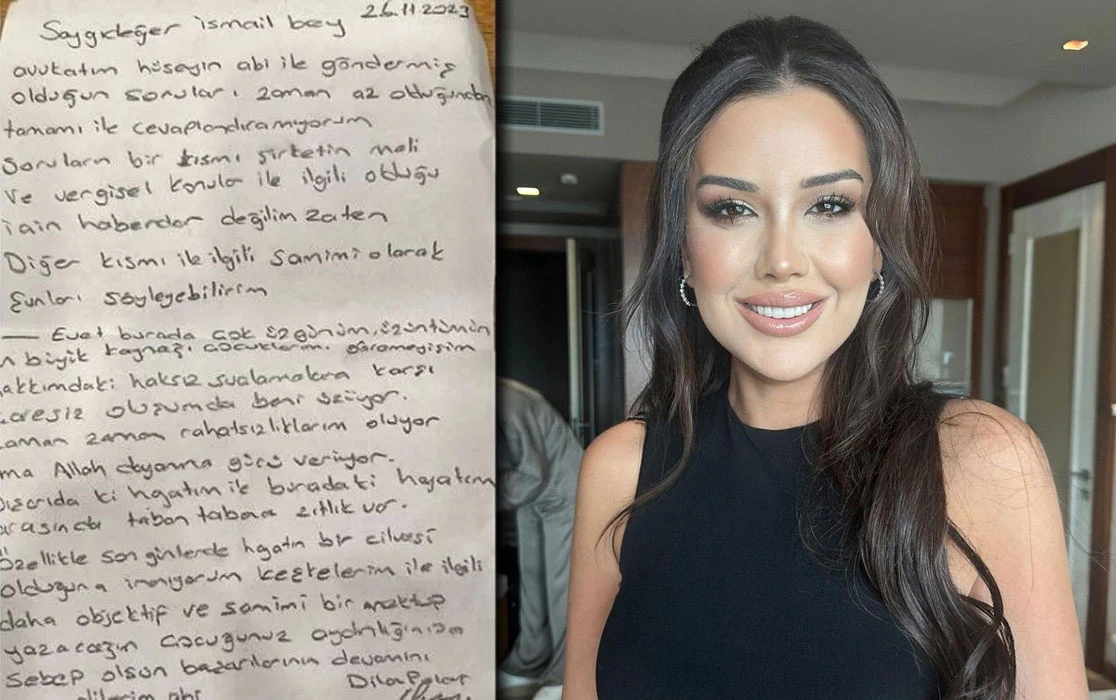 26.11.2023
Saygıdeğer ismail bey
avukatım hüseyin abi ile göndermiş
olduğun soruları zaman az olduğundan
tamamı ile cevaplandıramıyorum
Soruların bir kısmı şirketin mali
Ve vergisel konular ile ilgili olduğu
için haberdar değilim zaten
Diğer kısmı ile ilgili samimi olarak
Şunları söyleyebilirim
— Evet burada çok üzgünüm, üzüntümün
n büyük kaynağı çocuklarımı göremeyişim
akkımdaki haksız suçlamalara karşı
çaresiz oluşumda beni üzüyor.
aman zaman rahatsızlıklarım oluyor
ma Allah dayanma gücü veriyor.
ışarıda ki hayatım ile buradaki hayatım
arasında taban tabana zıtlık var.
Özellikle son günlerde hayatın bir cilvesi
olduğuna inanıyorum keşkelerim ile ilgili
daha objektif ve samimi bir mektup
yazacağım çocuğunuz aydınlığınıza
Sebep olsun başarılarının devamını
dilerim abi
Dila Polat